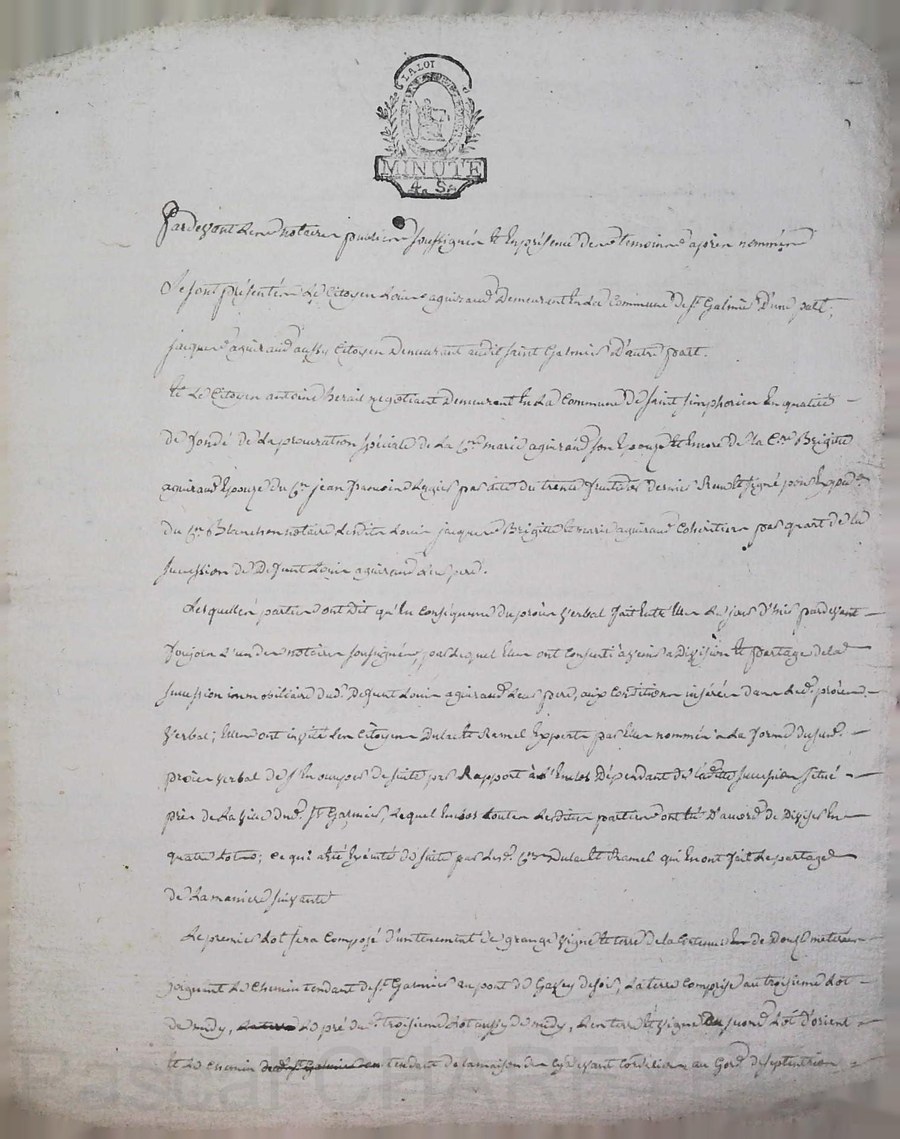 LA LOI
MINUTE
4. S.
Pardevant les notaires publics soussignés et en présence des témoins après nommés
Se sont présentés le Citoyen Louis aguiraud demeurant en la Commune de st. Galmier d'une part,
jacques aguiraud aussy Citoyen demeurant audit saint Galmier d'autre part.
et le Citoyen antoine negotiant demeurant en la Commune de saint simphorien en qualité
de fondé de la procuration spéciale de la Cne. marie aguiraud son Epouze et encore de la Cne. Brigitte
aguiraud Epouze du Cn. jean françois par acte du trente dernier signé
du Cn. Blanchon notaire lesdits Louis jacques Brigitte et marie aguiraud Cohéritiers par quart de la
succession de Defunt Louis aguiraud leur pere.
Lesquelles parties ont dit qu'en Conséquence du procès verbal fait entre Elles le jour d'hier pardevant
l'un des notaires soussignés, par lequel Elles ont Consenti à venir a Division et partage de la
succession immobiliaire dud. Defunt Louis aguiraud leur pere, aux Conditions insérées dans led. procès
verbal; Elles ont invité les Citoyens Dulac et Ramel Experts par Elles nommés a la forme dusd.
procès verbal de s'En occuper de suite par Rapport à l'Enclos Dépendant de laditte succession situé
près de la ville dud. st. Galmier, Lequel Enclos toutes lesdittes parties ont été D'accord de Diviser En
quatre Lots; ce qui a été Exécuté de suite par lesd. Cns. Dulac et Ramel qui En ont fait le partage
de la maniere suivante
Le premier Lot sera Composé d'un tenement de grange vigne et terre de la Contenue de Douze meterées
joignant le Chemin tendant de st. Galmier au pont de de soir, La terre Comprise au troisieme Lot
de midy, le pré du troisieme Lot aussy de midy, Les terre et vigne du second Lot d'orient
et le Chemin tendant de la maison des cydevant Cordeliers au de septentrion
Pascal CHAR